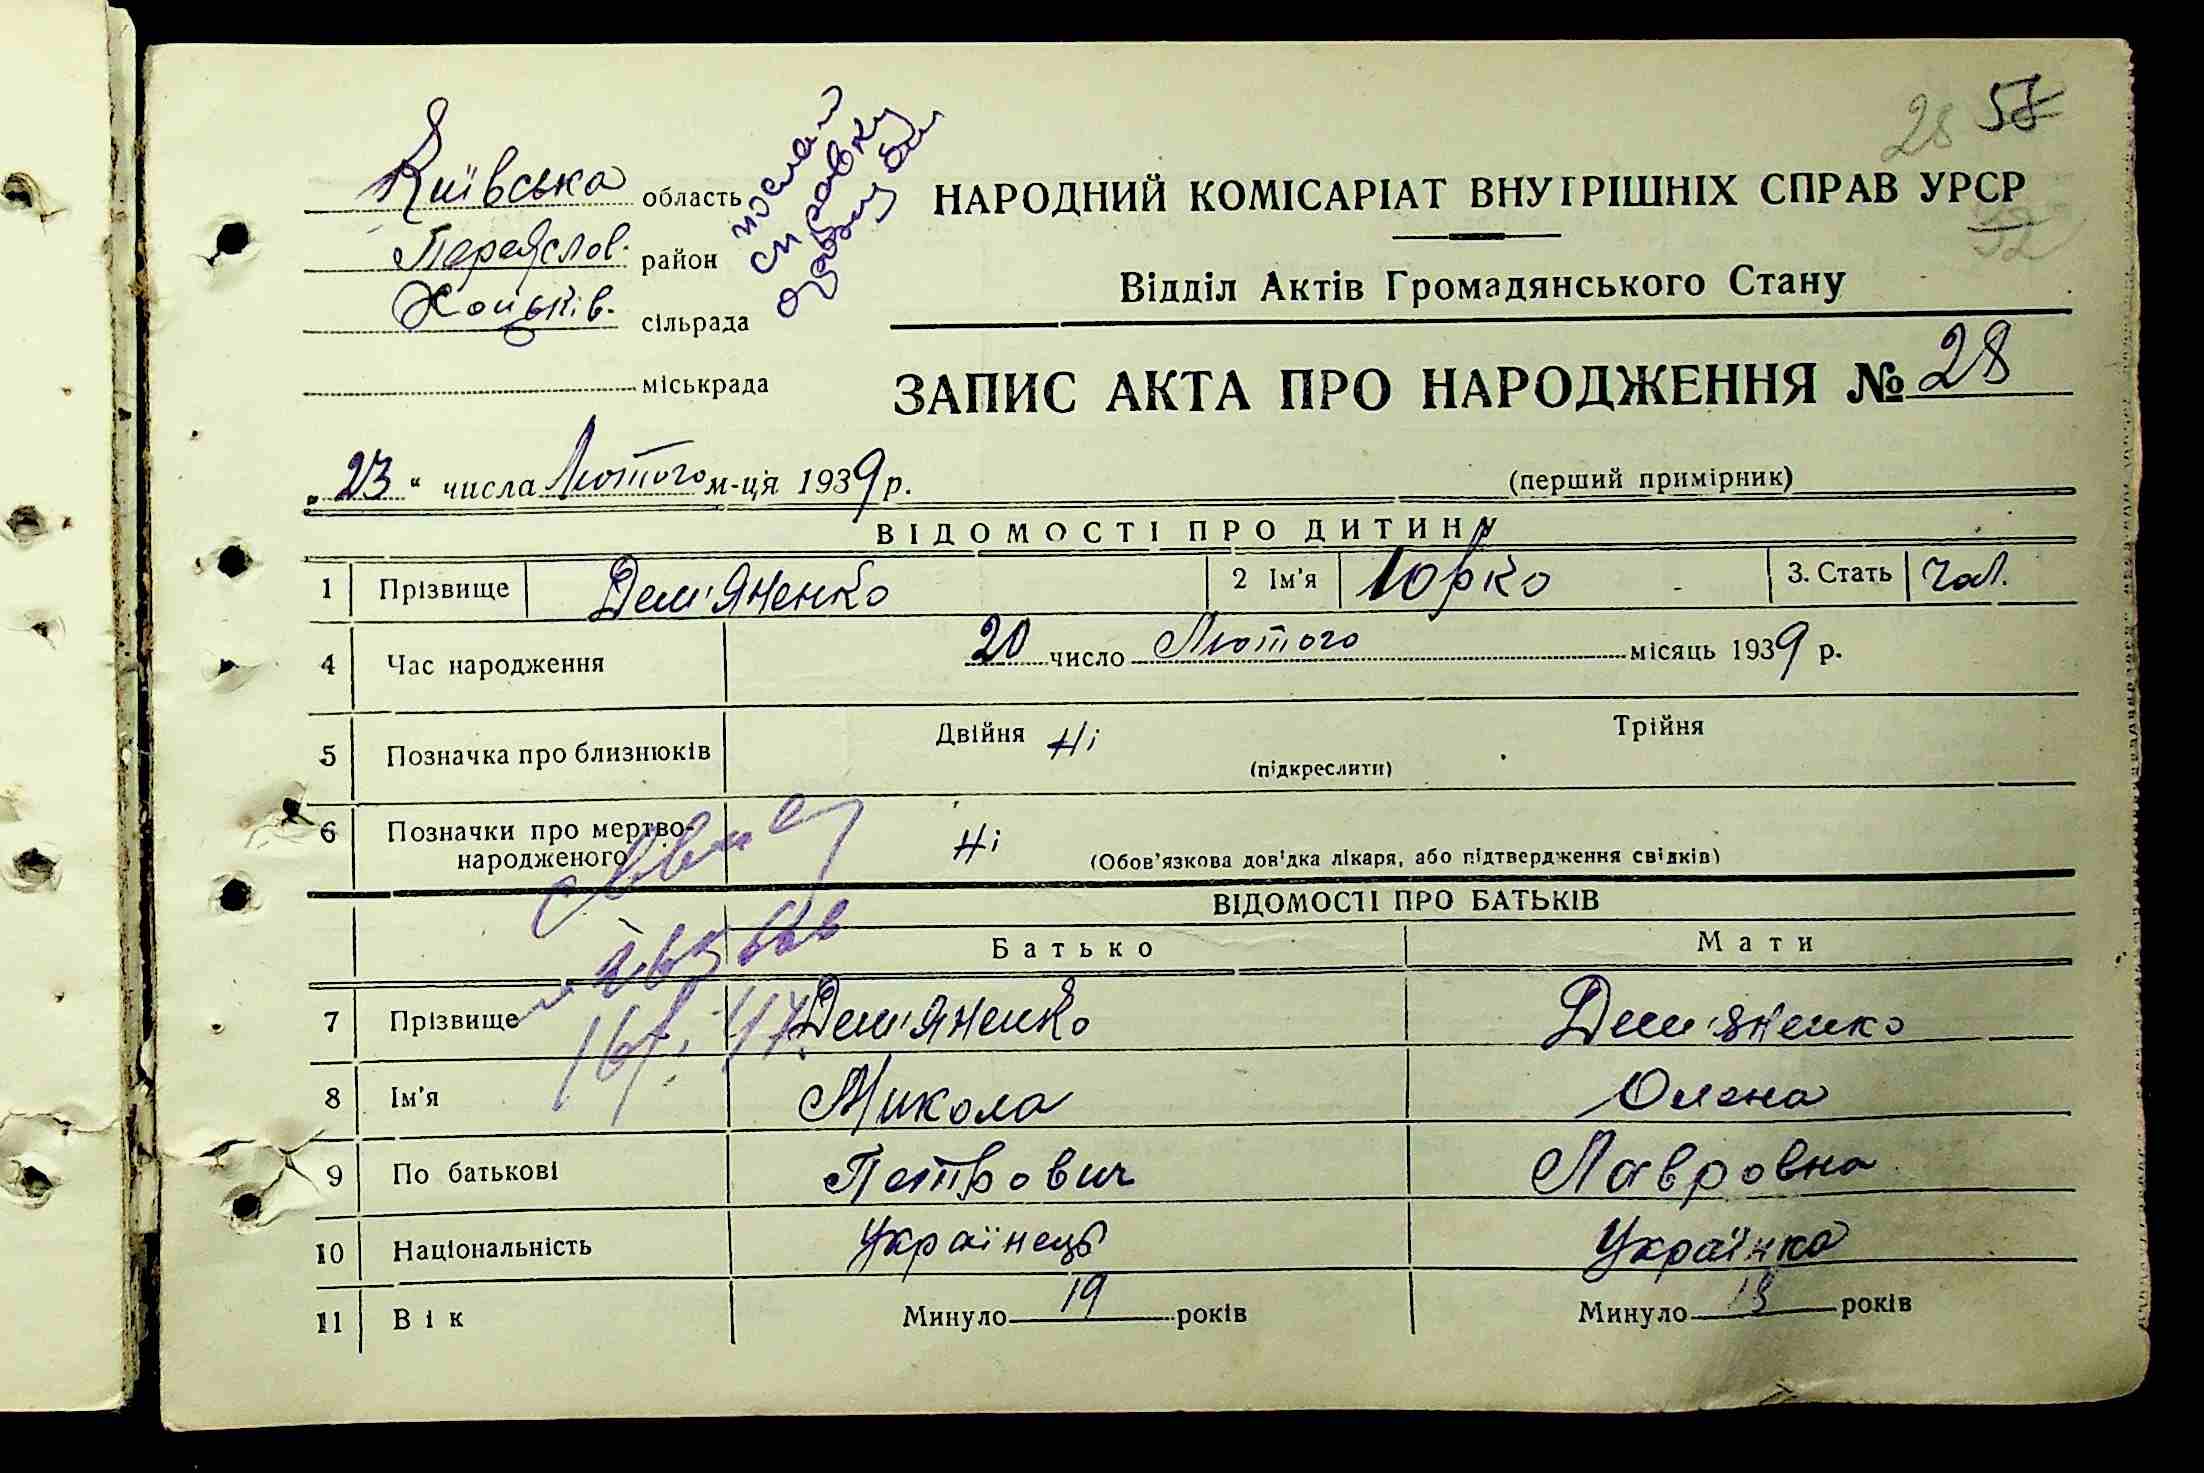 28 57
Київська область
Переяслов. район
Хоцьків. сільрада
міськрада
послал
справку
НАРОДНИЙ КОМІСАРІАТ ВНУТРІШНІХ СПРАВ УРСР
32
Відділ Актів Громадянського Стану
ЗАПИС АКТА ПРО НАРОДЖЕННЯ № 28
„23“ числа Лютого м-ця 1939 р.
(перший примірник)
ВІДОМОСТІ ПРО ДИТИНУ
1 Прізвище Дем'яненко 2 Ім'я Юрко 3. Стать чол.
4 Час народження 20 число Лютого місяць 1939 р.
5 Позначка про близнюків Двійня Ні Трійня
(підкреслити)
6 Позначки про мертво-
народженого Ні (Обов'язкова довідка лікаря, або підтвердження свідків)
ВІДОМОСТІ ПРО БАТЬКІВ
Батько Мати
7 Прізвище Дем'яненко Дем'яненко
8 Ім'я Микола Олена
9 По батькові Петрович Лавровна
10 Національність Українець Українка
11 Вік Минуло 19 років Минуло років